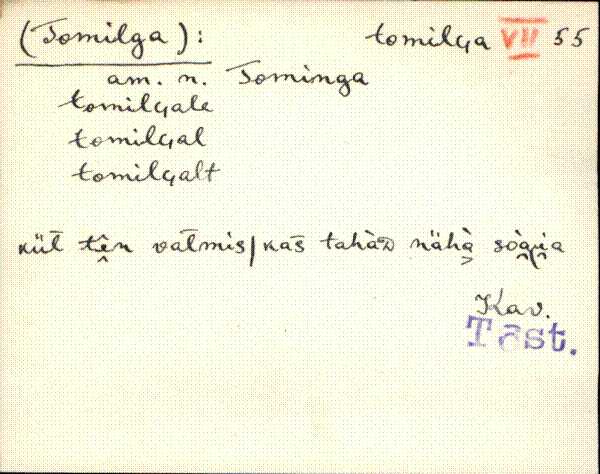 (Tomilga): tomilga VII 55
am. n. Tominga
tomilgale
tomilgal
tomilgalt
küt tên valmis/kas tahàD nähà
Kav.
Täst.